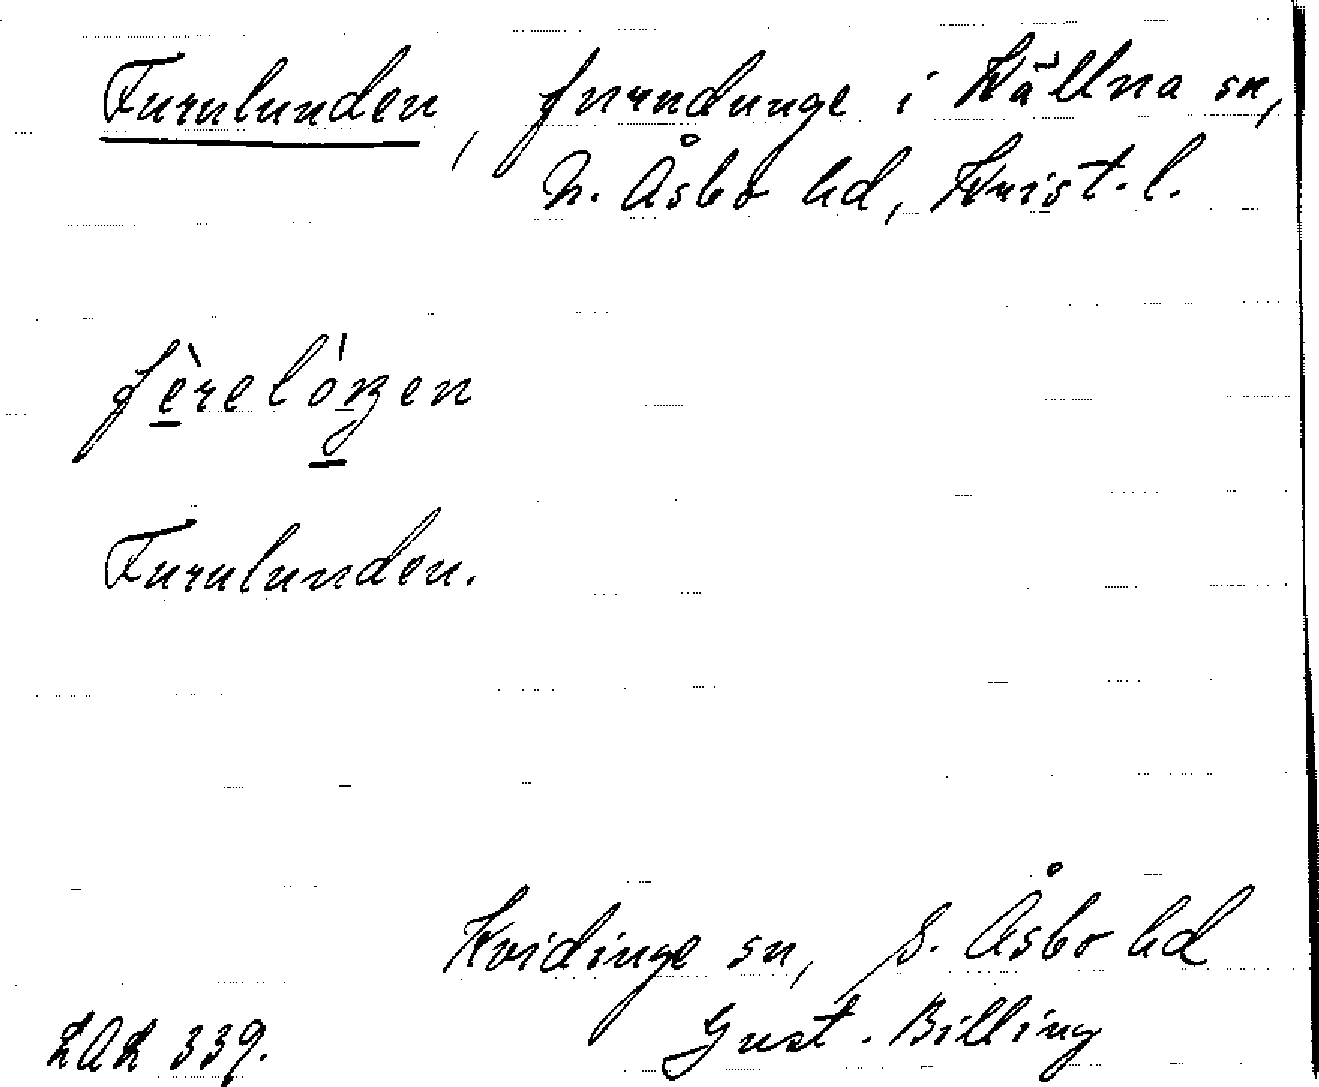 Furulunden, furudunge i Källna sn,
N. Åsbo hd, Krist. l.
Furulunden.
Kvidinge sn, S. Åsbo hd
LAL 339. Gust. Billing